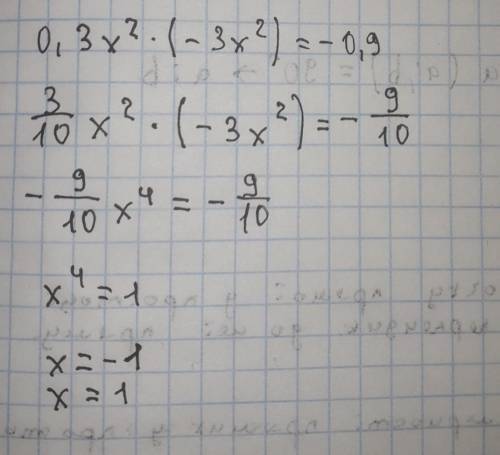 0,3x²·(-3x²)=-0,9
3/10 x²·(-3x²)=-9/10
-9/10 x⁴=-9/10
x⁴=1
x=-1
x=1